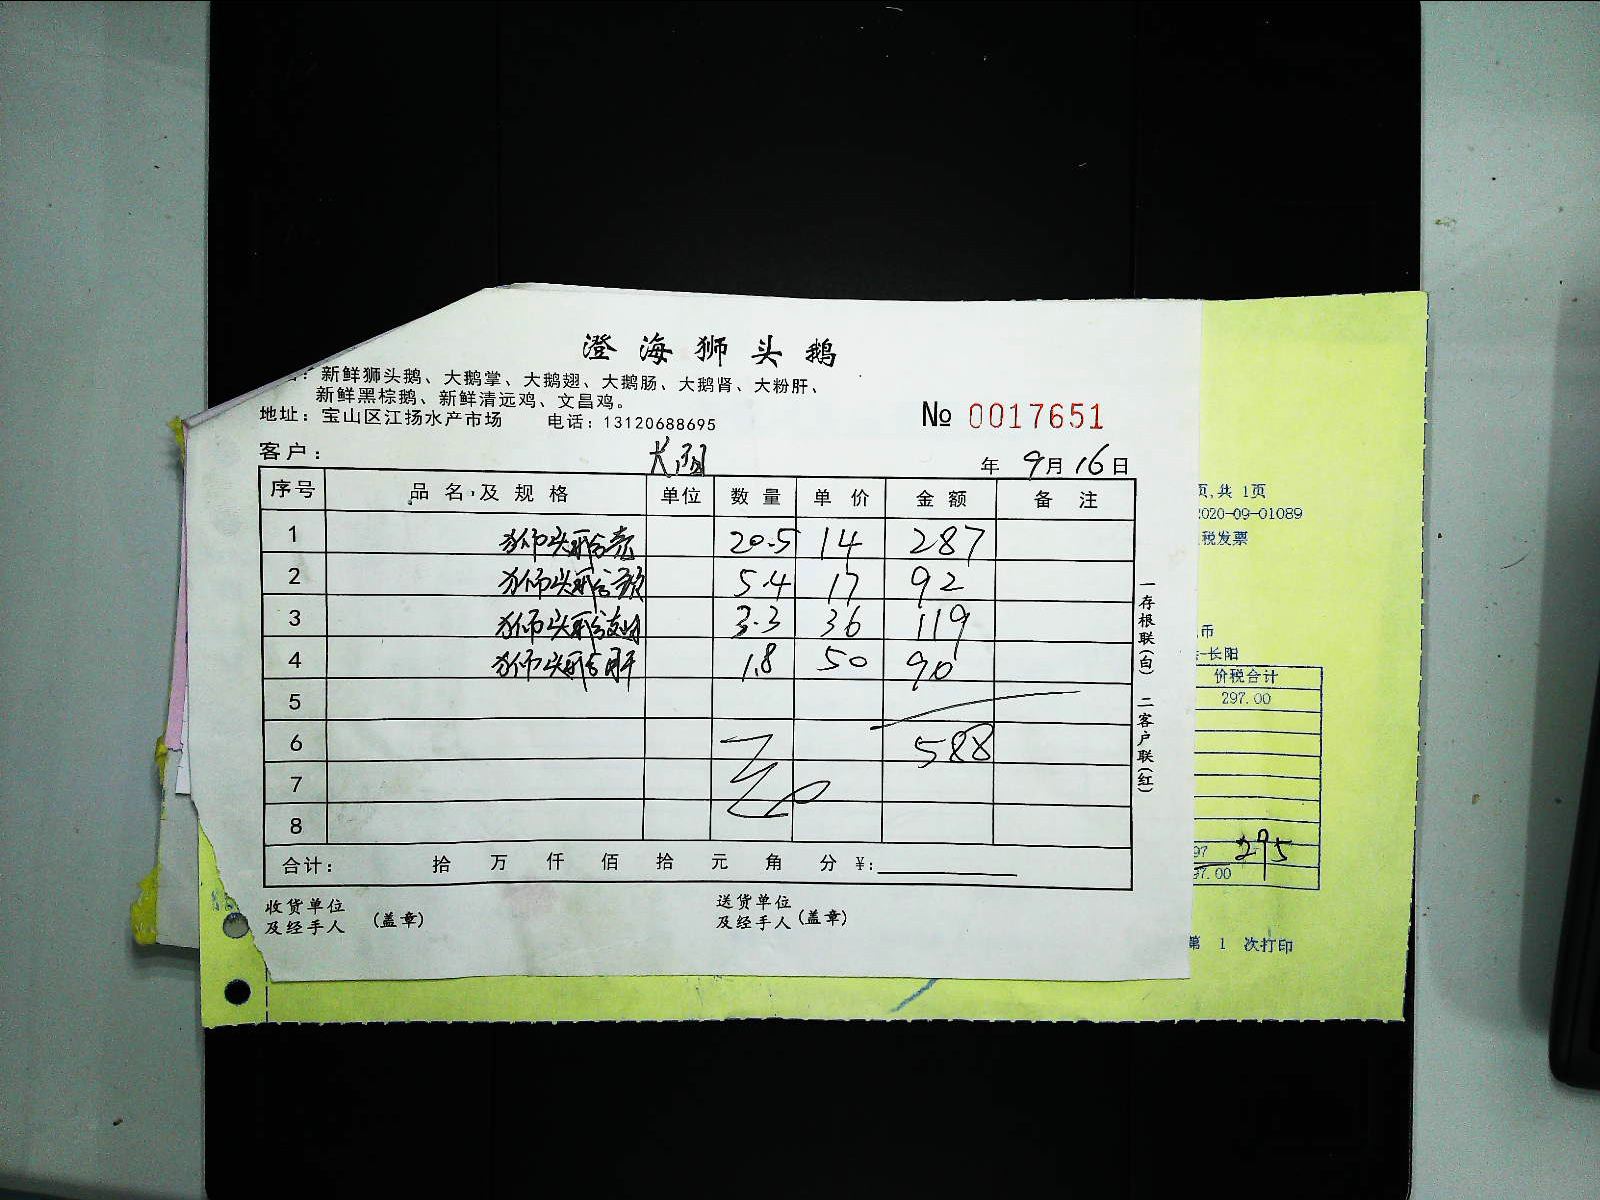 澄海狮头鹅
：新鲜狮头鹅、大鹅掌、大鹅翅、大鹅肠、大鹅肾、大粉肝、
新鲜黑棕鹅、新鲜清远鸡、文昌鸡。
地址：宝山区江扬水产市场 电话：13120688695
№ 0017651
客户：
年 9月16日
序号 品名及规格 单位 数量 单价 金额 备注
1 狮头鹅 20.5 14 287
2 狮头鹅 5.4 17 92
3 狮头鹅 3.3 36 119
4 狮头鹅肝 1.8 50 90
5
6 588
7
8
合计： 拾 万 仟 佰 拾 元 角 分 ¥:
收货单位
及经手人 (盖章)
送货单位
及经手人 (盖章)
一存根联(白) 二客户联(红)
页,共 1页
2020-09-01089
税发票
币
-长阳
价税合计
297.00
97 295
97.00
第 1 次打印